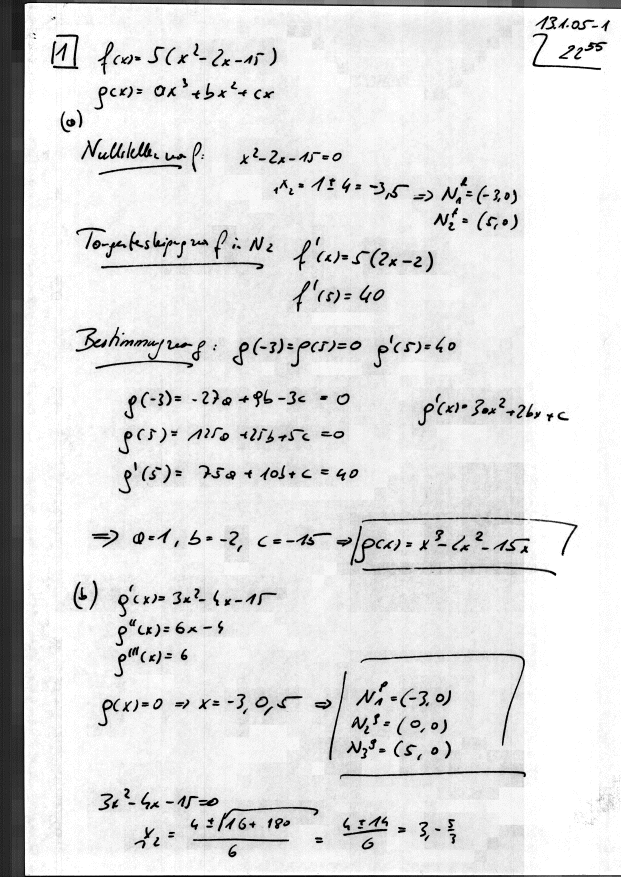 13.1.05-1
22⁵⁵
1 f(x) = 5(x²-2x-15)
g(x) = ax³+bx²+cx
(a)
Nullstellen von f: x²-2x-15=0
₁x₂ = 1 ± 4 = -3,5 ⇒ N₁ᶠ = (-3,0)
N₂ᶠ = (5,0)
Tangentensteigung von f in N₂ f'(x) = 5(2x-2)
f'(5) = 40
Bestimmung von g: g(-3)=g(5)=0 g'(5)=40
g(-3) = -27a + 9b - 3c = 0 g'(x) = 3ax²+2bx+c
g(5) = 125a +25b+5c = 0
g'(5) = 75a + 10b + c = 40
⇒ a=1, b=-2, c=-15 ⇒ g(x) = x³-2x²-15x
(b) g'(x) = 3x²-4x-15
g''(x) = 6x-4
g'''(x) = 6
g(x)=0 ⇒ x = -3, 0, 5 ⇒ N₁ᵍ = (-3,0)
N₂ᵍ = (0,0)
N₃ᵍ = (5,0)
3x²-4x-15=0
₁x₂ = (4 ± √(16+180))/6 = (4 ± 14)/6 = 3, -5/3